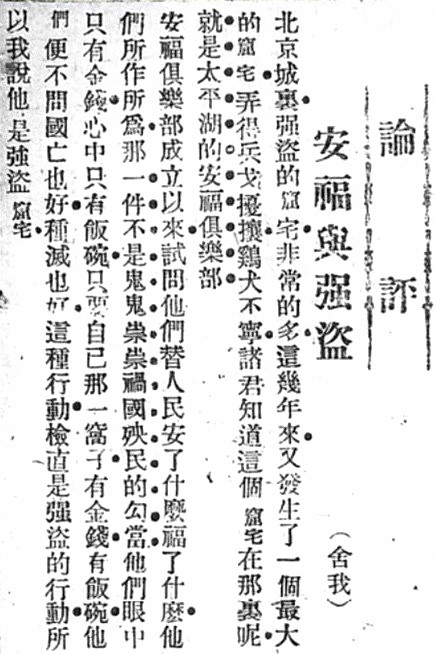 論評
安福與强盜
（舍我）
北京城裏强盜的窟宅非常的多這幾年來又發生了一個最大
的窟宅弄得兵戈擾攘鷄犬不寧諸君知道這個窟宅在那裏呢
就是太平湖的安福俱樂部
安福俱樂部成立以來試問他們替人民安了什麼福了什麼他
們所作所爲那一件不是鬼鬼祟祟禍國殃民的勾當他們眼中
只有金錢心中只有飯碗只要自己那一窩子有金錢有飯碗他
們便不問國亡也好種滅也好這種行動檢直是强盜的行動所
以我說他是强盜窟宅